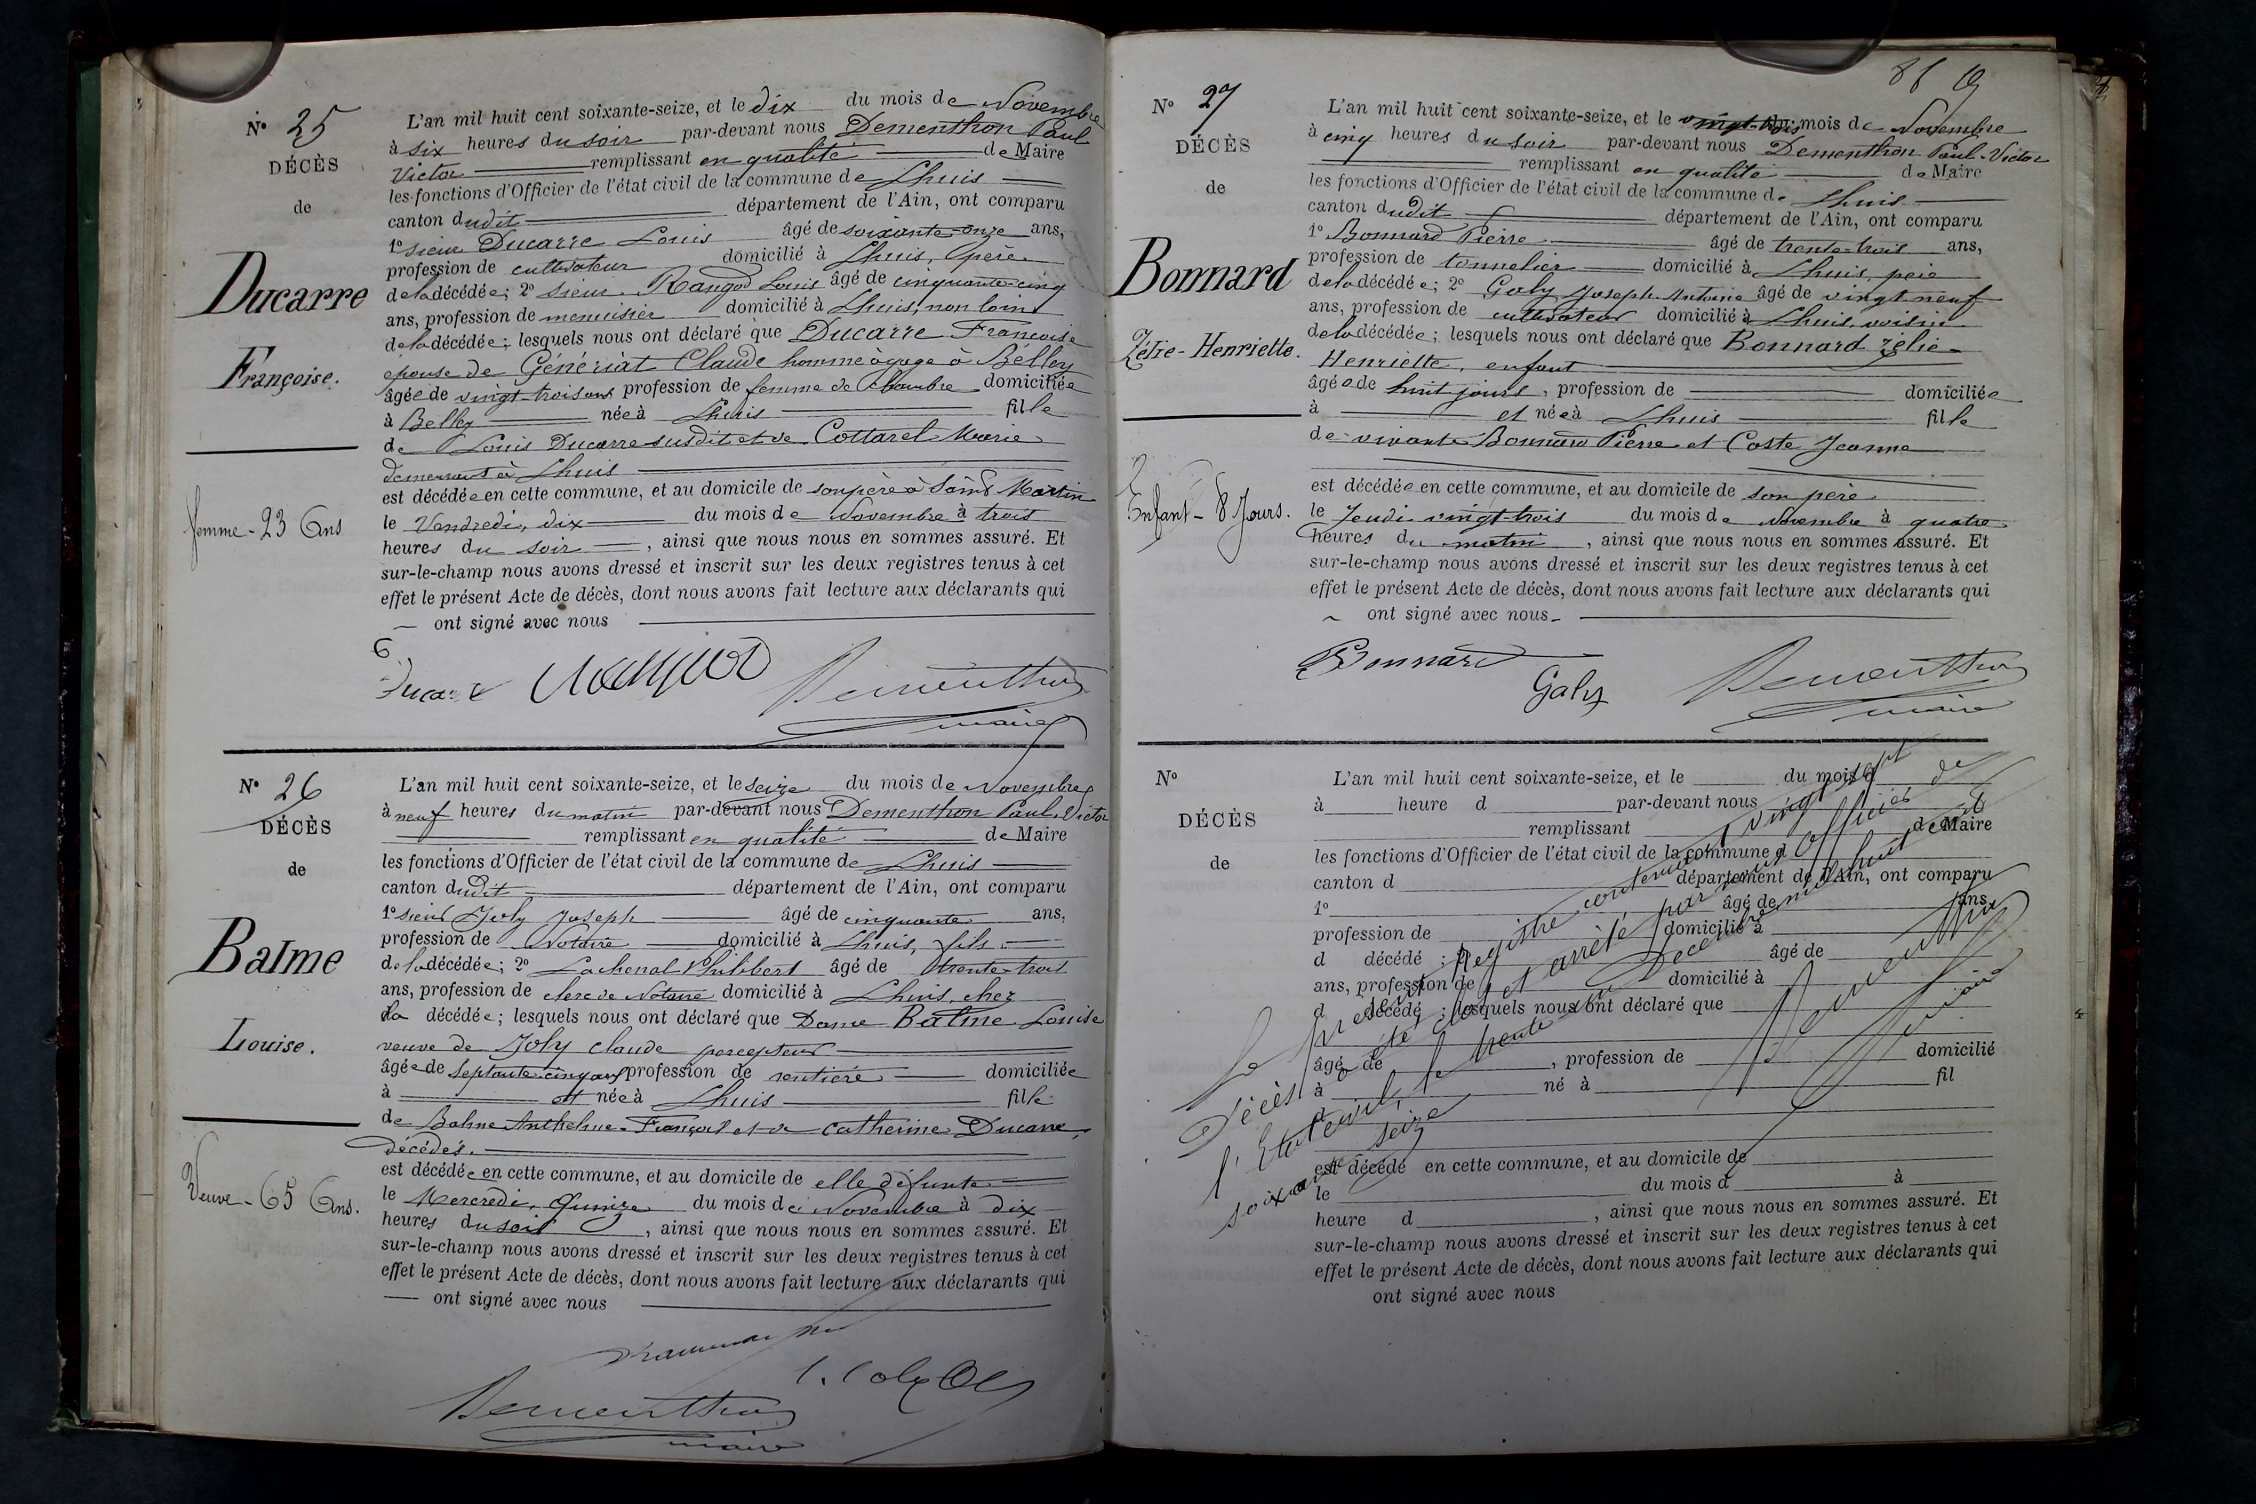 N° 25
DÉCÈS
de
Ducarre
Françoise.
femme - 23 Ans
L'an mil huit cent soixante-seize, et le dix du mois de Novembre
à six heures du soir par-devant nous Dementhon Paul
Victor remplissant en qualité de Maire
les fonctions d'Officier de l'état civil de la commune de Lhuis
canton dudit département de l'Ain, ont comparu
1° sieur Ducarre Louis âgé de soixante-onze ans,
profession de cultivateur domicilié à Lhuis, père
de la décédée; 2° sieur Rangod Louis âgé de cinquante-cinq
ans, profession de menuisier domicilié à Lhuis, non loin
de la décédée; lesquels nous ont déclaré que Ducarre Françoise
épouse de Génériat Claude homme à gage à Belley
âgée de vingt-trois ans profession de femme de chambre domiciliée
à Belley née à Lhuis fille
de Louis Ducarre susdit et de Cottarel Marie
demeurant à Lhuis
est décédée en cette commune, et au domicile de son père à Saint Martin
le Vendredi, dix du mois de Novembre à trois
heures du soir, ainsi que nous nous en sommes assuré. Et
sur-le-champ nous avons dressé et inscrit sur les deux registres tenus à cet
effet le présent Acte de décès, dont nous avons fait lecture aux déclarants qui
ont signé avec nous
Ducarre Rangod Dementhon
maire
N° 26
DÉCÈS
de
Balme
Louise.
Veuve - 65 Ans.
L'an mil huit cent soixante-seize, et le seize du mois de Novembre
à neuf heures du matin par-devant nous Dementhon Paul-Victor
remplissant en qualité de Maire
les fonctions d'Officier de l'état civil de la commune de Lhuis
canton dudit département de l'Ain, ont comparu
1° sieur Joly Joseph âgé de cinquante ans,
profession de Notaire domicilié à Lhuis, fils
de la décédée; 2° Lachenal Philibert âgé de trente-trois
ans, profession de clerc de Notaire domicilié à Lhuis, chez
la décédée; lesquels nous ont déclaré que Dame Balme Louise
veuve de Joly Claude percepteur
âgée de septante-cinq ans profession de rentière domiciliée
à et née à Lhuis fille
de Balme Anthelme-François et de Catherine Ducarre,
décédés.
est décédée en cette commune, et au domicile de elle défunte
le Mercredi, Quinze du mois de Novembre à dix
heures du soir, ainsi que nous nous en sommes assuré. Et
sur-le-champ nous avons dressé et inscrit sur les deux registres tenus à cet
effet le présent Acte de décès, dont nous avons fait lecture aux déclarants qui
ont signé avec nous
Dementhon
maire
N° 27
DÉCÈS
de
Bonnard
Zélie-Henriette.
Enfant - 8 Jours.
L'an mil huit cent soixante-seize, et le vingt-trois du mois de Novembre
à cinq heures du soir par-devant nous Dementhon Paul-Victor
remplissant en qualité de Maire
les fonctions d'Officier de l'état civil de la commune de Lhuis
canton dudit département de l'Ain, ont comparu
1° Bonnard Pierre âgé de trente-trois ans,
profession de tonnelier domicilié à Lhuis, père
de la décédée; 2° Galy Joseph-Antoine âgé de vingt neuf
ans, profession de cultivateur domicilié à Lhuis, voisin
de la décédée; lesquels nous ont déclaré que Bonnard Zélie-
Henriette, enfant
âgée de huit jours, profession de domiciliée
à et née à Lhuis fille
de vivants Bonnard Pierre et Coste Jeanne
est décédée en cette commune, et au domicile de son père
le Jeudi vingt-trois du mois de Novembre à quatre
heures du matin, ainsi que nous nous en sommes assuré. Et
sur-le-champ nous avons dressé et inscrit sur les deux registres tenus à cet
effet le présent Acte de décès, dont nous avons fait lecture aux déclarants qui
ont signé avec nous
Bonnard Galy Dementhon
maire
N°
DÉCÈS
de
L'an mil huit cent soixante-seize, et le du mois d
à heure d par-devant nous
remplissant de Maire
les fonctions d'Officier de l'état civil de la commune d
canton d département de l'Ain, ont comparu
1° âgé de ans,
profession de domicilié à
d décédé ; 2° âgé de
ans, profession de domicilié à
d décédé ; lesquels nous ont déclaré que
âgé de , profession de domicilié
à né à fil
d
est décédé en cette commune, et au domicile de
le du mois d à
heure d , ainsi que nous nous en sommes assuré. Et
sur-le-champ nous avons dressé et inscrit sur les deux registres tenus à cet
effet le présent Acte de décès, dont nous avons fait lecture aux déclarants qui
ont signé avec nous
Le présent registre contenant vingt sept
Décès a été clos et arrêté par nous Officier de
l'Etat civil, le trente un Décembre mil huit cent
soixante seize
Dementhon
maire